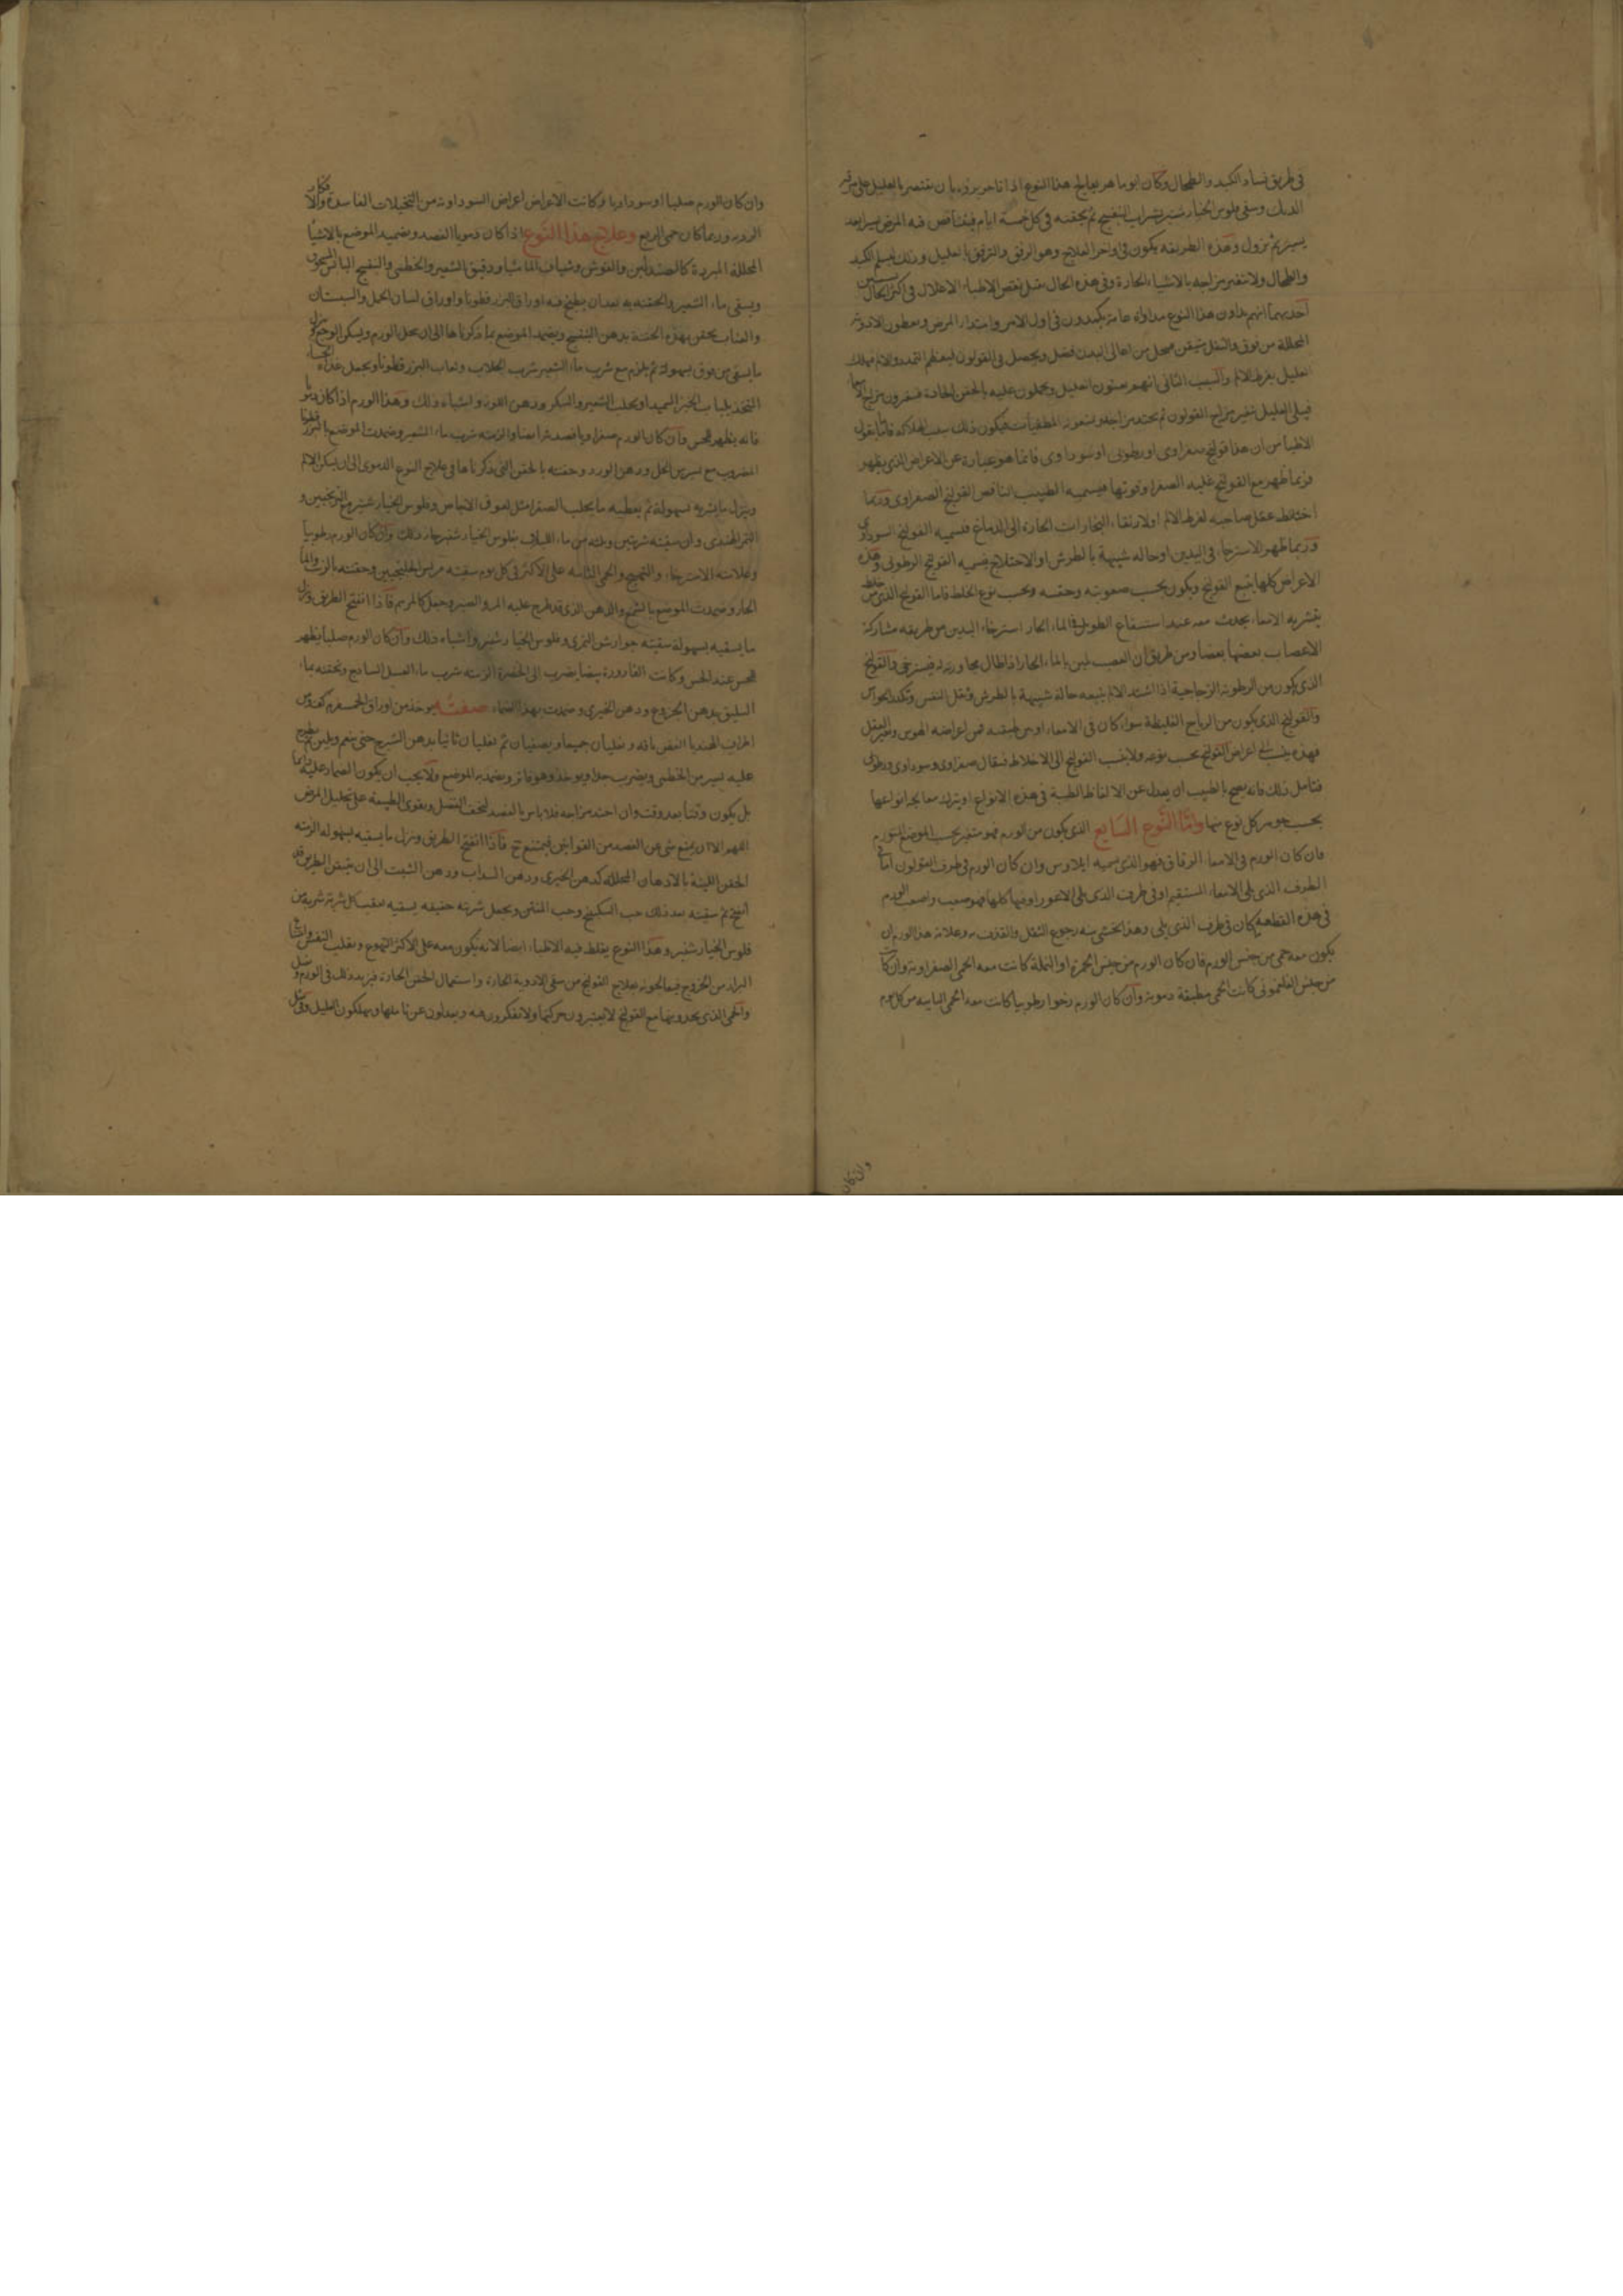 في طريق فساد الكبد والطحال وكان ابو ماهر يعالج هذا النوع اذا تاخر برؤه بان يقتصر بالعليل على مرقة
الديك وسقي فلوس الخيار شنبر بشراب البنفسج ثم يحقنه في كل خمسة ايام فيتناقص فيه المرض يسيرا بعد
يسير ثم يزول وهذه الطريقة يكون في اواخر العلاج وهو الرفق والترفق بالعليل وبذلك يسلم الكبد
والطحال ولا يتغير مزاجه بالاشياء الحارة وفي هذه الحال يقتل بعض الاطباء الاعلال في اكثر الحال
احدهما انهم يداوون هذا النوع مداواة عامة يكمدون في اول الامر وابتداء المرض ويعطون الادوية
المحللة من فوق والثفل متيقن فيحل من اعالي البدن فضل ويحصل في القولون فيعظم التمدد والالم فيهلك
العليل بفرط الالم والسبب الثاني انهم يعنتون العليل ويحملون عليه بالحقن الحادة فيغيرون مزاج الامعا
فيلى العليل بتغير مزاج القولون ثم يحتد مزاجه ويسقونه المطفيات فيكون ذلك سبب هلاكه فاما يقول
الاطبا من ان هذا قولنج صفراوي او رطوبي او سوداوي فانما هو عبارة عن الاعراض الذي يظهر
فربما ظهر مع القولنج غلبة الصفرا وقوتها فيسميه الطبيب الناقص القولنج الصفراوي وربما
اختلط عقل صاحبه لفرط الالم او لارتقاء البخارات الحارة الى الدماغ فيسميه القولنج السوداوي
وربما ظهر الاسترخاء في اليدين او حالة شبيهة بالطرش او الاختلاج فيسميه القولنج الرطوبي وهذه
الاعراض كلها يتبع القولنج ويكون بحسب صعوبته وخفته وبحسب نوع الخلط فاما القولنج الذي من خلط
يتشربه الامعاء يحدث معه عند استنقاع الطويل في الماء الحار استرخاء اليدين من طريق مشاركة
الاعصاب بعضها بعضا ومن طريق ان العصب يلين بالماء الحار اذا طال مجاورته له فيسترخي والقولنج
الذي يكون من الرطوبة الزجاجية اذا اشتد الالم يتبعه حالة شبيهة بالطرش وثقل النفس وتكدر الحواس
والقولنج الذي يكون من الرياح الغليظة سواء كان في الامعاء او بين طبقتيه فمن اعراضه الهوس وتغير العقل
فهذه اعراض القولنج بحسب نوعه ولا ينسب القولنج الى الاخلاط فيقال صفراوي وسوداوي ورطوبي
فتامل ذلك فانه يصح بالطبيب ان يعدل عن الالفاظ الطبية في هذه الانواع او يترك معالجة انواعها
بحسب جوهر كل نوع منها واما النوع السابع الذي يكون من الورم فهو متغير بحسب الموضع المتورم
فان كان الورم في الامعاء الدقاق فهو الذي يسميه ايلاوس وان كان الورم في طرف القولون اما في
الطرف الذي يلي الامعاء المستقيم او في طرف الذي يلي الاعور او فيها كلها فهو صعب واصعب الورم
في هذه القطعة كان في طرف الذي يلي وهذا يخشى منه رجوع الثفل والقذف به وعلامة هذا الورم ان
يكون معه حمى من جنس الورم فان كان الورم من جنس الحمرة او النملة كانت معه الحمى الصفراوية وان كان
من جنس الفلغموني كانت الحمى مطبقة دموية وان كان الورم رخوا رطوبيا كانت معه الحمى النايبة من كل يوم
وان كان
وان كان الورم صلبا او سوداويا وكانت الاعراض اعراض السوداوية من التخيلات الفاسدة والافكار
الردية وربما كان حمى الربع وعلاج هذا النوع اذا كان دمويا الفصد وتضميد الموضع بالاشيا
المحللة المبردة كالصندلين والفوفل وشياف الماميثا ودقيق الشعير والخطمي والبنفسج اليابس المسحوق
ويسقى ماء الشعير والحقنة به بعد ان يطبخ فيه اوراق البزر قطونا واوراق لسان الحمل والسبستان
والعناب يحقن بهذه الحقنة بدهن البنفسج ويضمد الموضع بما ذكرناها الى ان يحل الورم ويسكن الوجع وينزل
ما يسقى من فوق بسهولة ثم يلزم مع شرب ماء الشعير شرب الجلاب ولعاب البزر قطونا ويجعل غذاءه الحساء
المتخذ بلباب الخبز السميد او بحلب الشعير والسكر ودهن اللوز واشباه ذلك وهذا الورم اذا كان دمويا
فانه يظهر للحس وان كان الورم صفراويا فصد شرابضا والزمته شرب ماء الشعير وضمدت الموضع بالبزر قطونا
المضروب مع يسير من الخل ودهن الورد وحقنته بالحقن التي ذكرناها في علاج النوع الدموي الى ان يسكن الالم
وينزل ما يشربه بسهولة ثم يعطيه ما يجلب الصفرا مثل لعوق الاجاص وفلوس الخيار شنبر مع الترنجبين و
التمر الهندي وان سقيته شربتين وثلثه من ماء اللبلاب بفلوس الخيار شنبر جاز ذلك وان كان الورم رطوبيا
وعلامته الاسترخاء والتهيج والحمى النايبة على الاكثر في كل يوم سقيته مرس الخلنجبين وحقنته بالزيت والماء
الحار وضمدت الموضع بالشمع والدهن الذي قد طرح عليه المر والصبر وجعل كالمرهم فاذا انفتح الطريق ونزل
ما يسقيه بسهولة سقيته جوارش التمري وفلوس الخيار شنبر واشباه ذلك وان كان الورم صلبا يظهر
للحس عند الحس وكانت القارورة بيضا يضرب الى الخضرة الزمته شرب ماء العسل الساذج وتحقنه بماء
السليق بدهن الخروع ودهن الخيري وضمدت بهذا الضماد صفته يؤخذ من اوراق
اطراف الهندبا الغض باقة ويغليان جميعا ويصفيان ثم يغليان ثانيا بدهن الشيرج حتى ينعم ويلين ثم يطرح
عليه يسير من الخطمي ويضرب جدا ويؤخذ وهو فاتر ويضمد به الموضع ولا يجب ان يكون الضماد عليه دايما
بل يكون وقتا بعد وقت وان احتد مزاجه فلا باس بالفصد ليخف الثقل ويقوى الطبيعة على تحليل المرض
اللهم الا ان يمنع شي عن الفصد من القوانين فيمتنع فاذا انفتح الطريق ونزل ما يسقيه بسهولة الزمته
الحقن اللينة بالادهان المحللة كدهن الخيري ودهن السداب ودهن الشبت الى ان يتيقن الطريق قد
انفتح ثم سقيته بعد ذلك حب السكبينج وحب المنتن ويجعل شربته خفيفة يسقيه بعقب كل شربة شربة من
فلوس الخيار شنبر وهذا النوع يغلط فيه الاطباء ايضا لانه يكون معه على الاكثر التهوع وتقلب النفس واحتباس
البراز من الخروج فيعالجونه بعلاج القولنج من سقي الادوية الحارة واستعمال الحقن الحادة فيزيد ذلك في الورم
والحمى الذي يجدونها مع القولنج لا يعتبرون حركتها ولا يفكرون فيه ويعدلون عن تاملها ويهلكون العليل